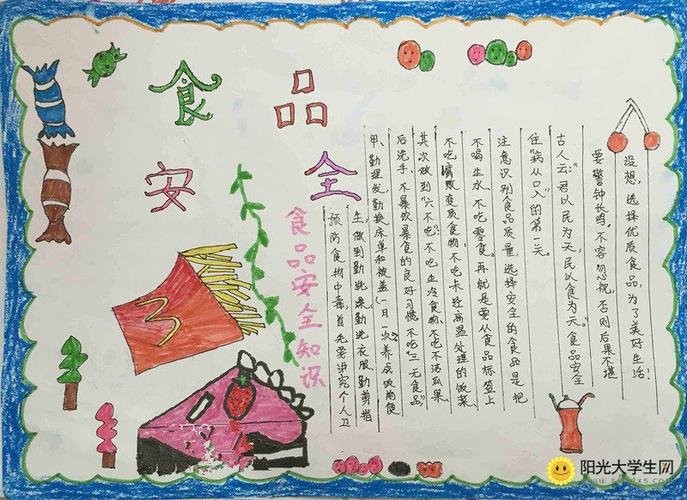 食品
安全
食品安全知识
预防食物中毒首先要讲究个人卫
生,做到勤洗澡勤洗衣服勤剪指
甲、勤理发勤换床单和被盖(一月一次)养成饭前便
后洗手、不暴饮暴食的良好习惯.不吃“三无食品”
其次做到“六不吃”.不吃生冷食物.不吃不洁瓜果
不吃腐败变质食物.不吃未经高温处理的饭菜
不喝生水.不吃零食。再就是要从食品标签上
注意识别食品质量.选择安全的食品是把
住“病从口入”的第一关。
古人云:君以民为天,民以食为天。食品安全
要警钟长鸣.不容忽视.否则后果不堪
设想,选择优质食品,为了美好生活!
阳光大学生网